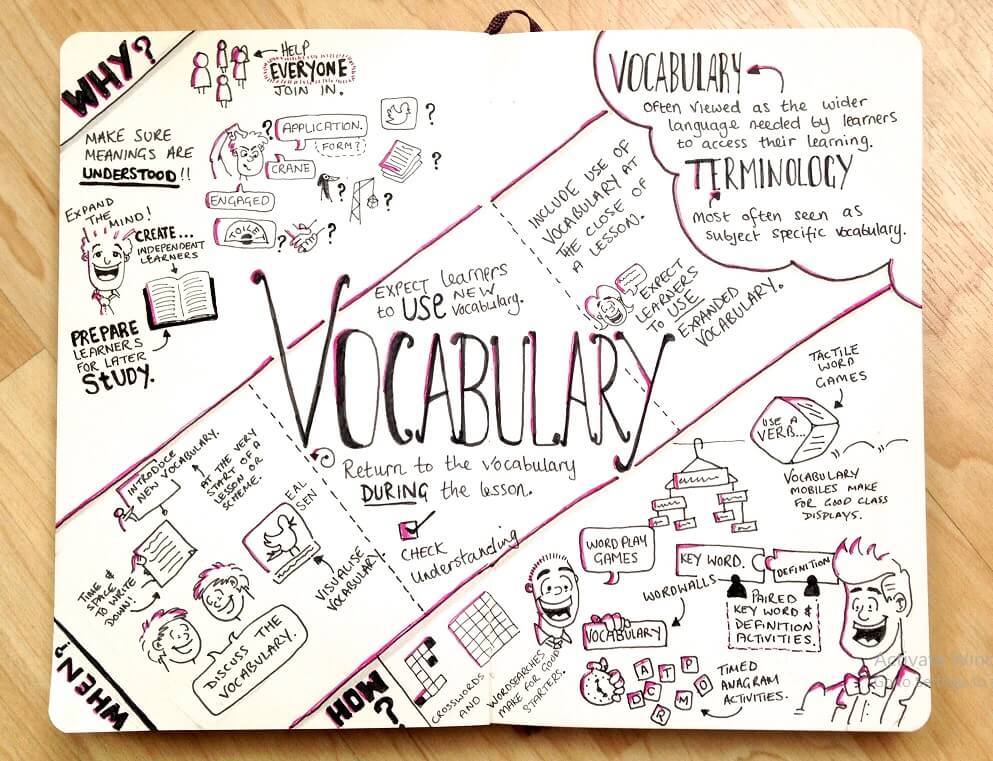 WHY?
HELP
EVERYONE
JOIN IN.
MAKE SURE
MEANINGS ARE
UNDERSTOOD!!
?
APPLICATION.
FORM?
CRANE
ENGAGED
?
?
?
?
TOILET
?
?
EXPAND
THE
MIND!
CREATE...
INDEPENDENT
LEARNERS
PREPARE
LEARNERS
FOR LATER
STUDY.
VOCABULARY
Often viewed as the wider
language needed by learners
to access their learning.
TERMINOLOGY
Most often seen as
subject specific vocabulary.
EXPECT learners
to USE NEW
vocabulary.
INCLUDE USE OF
VOCABULARY AT
THE CLOSE OF
A LESSON.
EXPECT
LEARNERS
TO USE
EXPANDED
VOCABULARY.
VOCABULARY
Return to the vocabulary
DURING the lesson.
CHECK
understanding
WHEN?
INTRODUCE
NEW VOCABULARY.
AT THE VERY
START OF A
LESSON OR
SCHEME.
TIME &
SPACE
TO WRITE
DOWN!
EAL
SEN
VISUALISE
VOCABULARY
DISCUSS THE
VOCABULARY.
HOW?
CROSSWORDS
AND
WORDSEARCHES
MAKE FOR GOOD
STARTERS.
WORD PLAY
GAMES
WORDWALLS
VOCABULARY
TACTILE
WORD
GAMES
USE A
VERB...
VOCABULARY
MOBILES MAKE
FOR GOOD CLASS
DISPLAYS.
KEY WORD.
DEFINITION
PAIRED
KEY WORD &
DEFINITION
ACTIVITIES.
A T P
D C R M O
TIMED
ANAGRAM
ACTIVITIES.